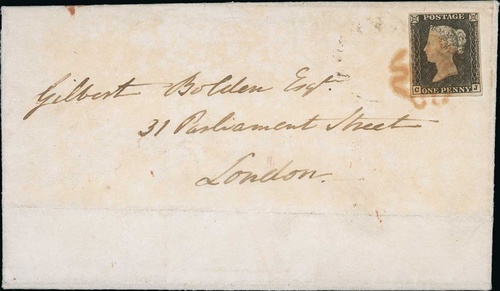 POSTAGE
C J
ONE PENNY
Gilbert Bolden Esqr.
31 Parliament Street
London.